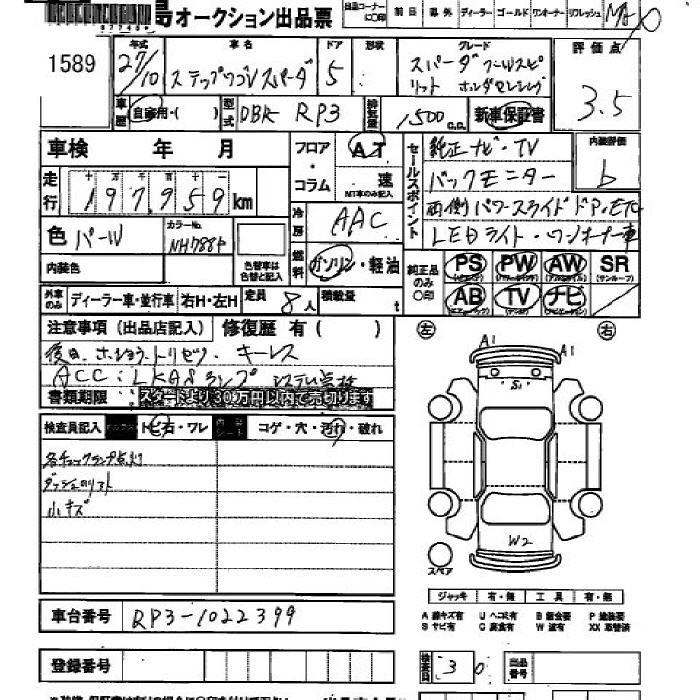 オークション出品票
出品コーナーに○印 前日 県外 ディーラー ゴールド ワンオーナー リフレッシュ
1589
年式 車名 ドア 形状 グレード 評価点
27/10 ステップワゴンスパーダ 5 スパーダ クールスピリット ホンダセンシング 3.5
車歴 自家用・( ) 型式 DBA RP3 排気量 1,500 C.C. 新車保証書
車検 年 月 フロア・コラム AT 速 MT車のみ記入
セールスポイント 純正ナビ・TV 内装評価 b
バックモニター
両側パワースライドドア・ETC
LEDライト・ワンオーナー車
走行 十 万 千 197,959 km
冷房 AAC
色 パール カラーNo. NH788P 色替車は色替と記入
燃料 ガソリン・軽油
内装色
純正品のみ○印 PS PW AW SR (サンルーフ)
AB TV ナビ
外車のみ ディーラー車・並行車 右H・左H 定員 8人 積載量 t
注意事項(出品店記入) 修復歴 有( )
後日、ホショウ、トリセツ、キーレス
ACC:LKASランプ システム点検
書類期限 スタートより30万円以内で売切ります
検査員記入 トビ石・ワレ 内装シート コゲ・穴・汚れ・破れ
各チェックランプ点灯
小キズ
左 右
A1 A1
S1
W2
スペア
ジャッキ 有・無 工具 有・無
A 線キズ有 U ヘコミ有 B 鈑金要 P 塗装要
S サビ有 C 腐食有 W 波有 XX 取替済
車台番号 RP3-1022399
登録番号
検査員 30 出品番号